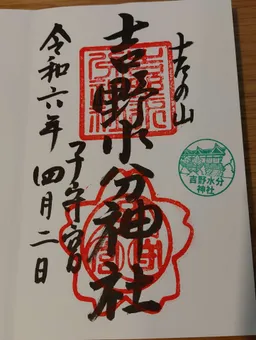 吉の山
吉野水分神社
子守宮
令和六年四月二日
吉野水分
神社